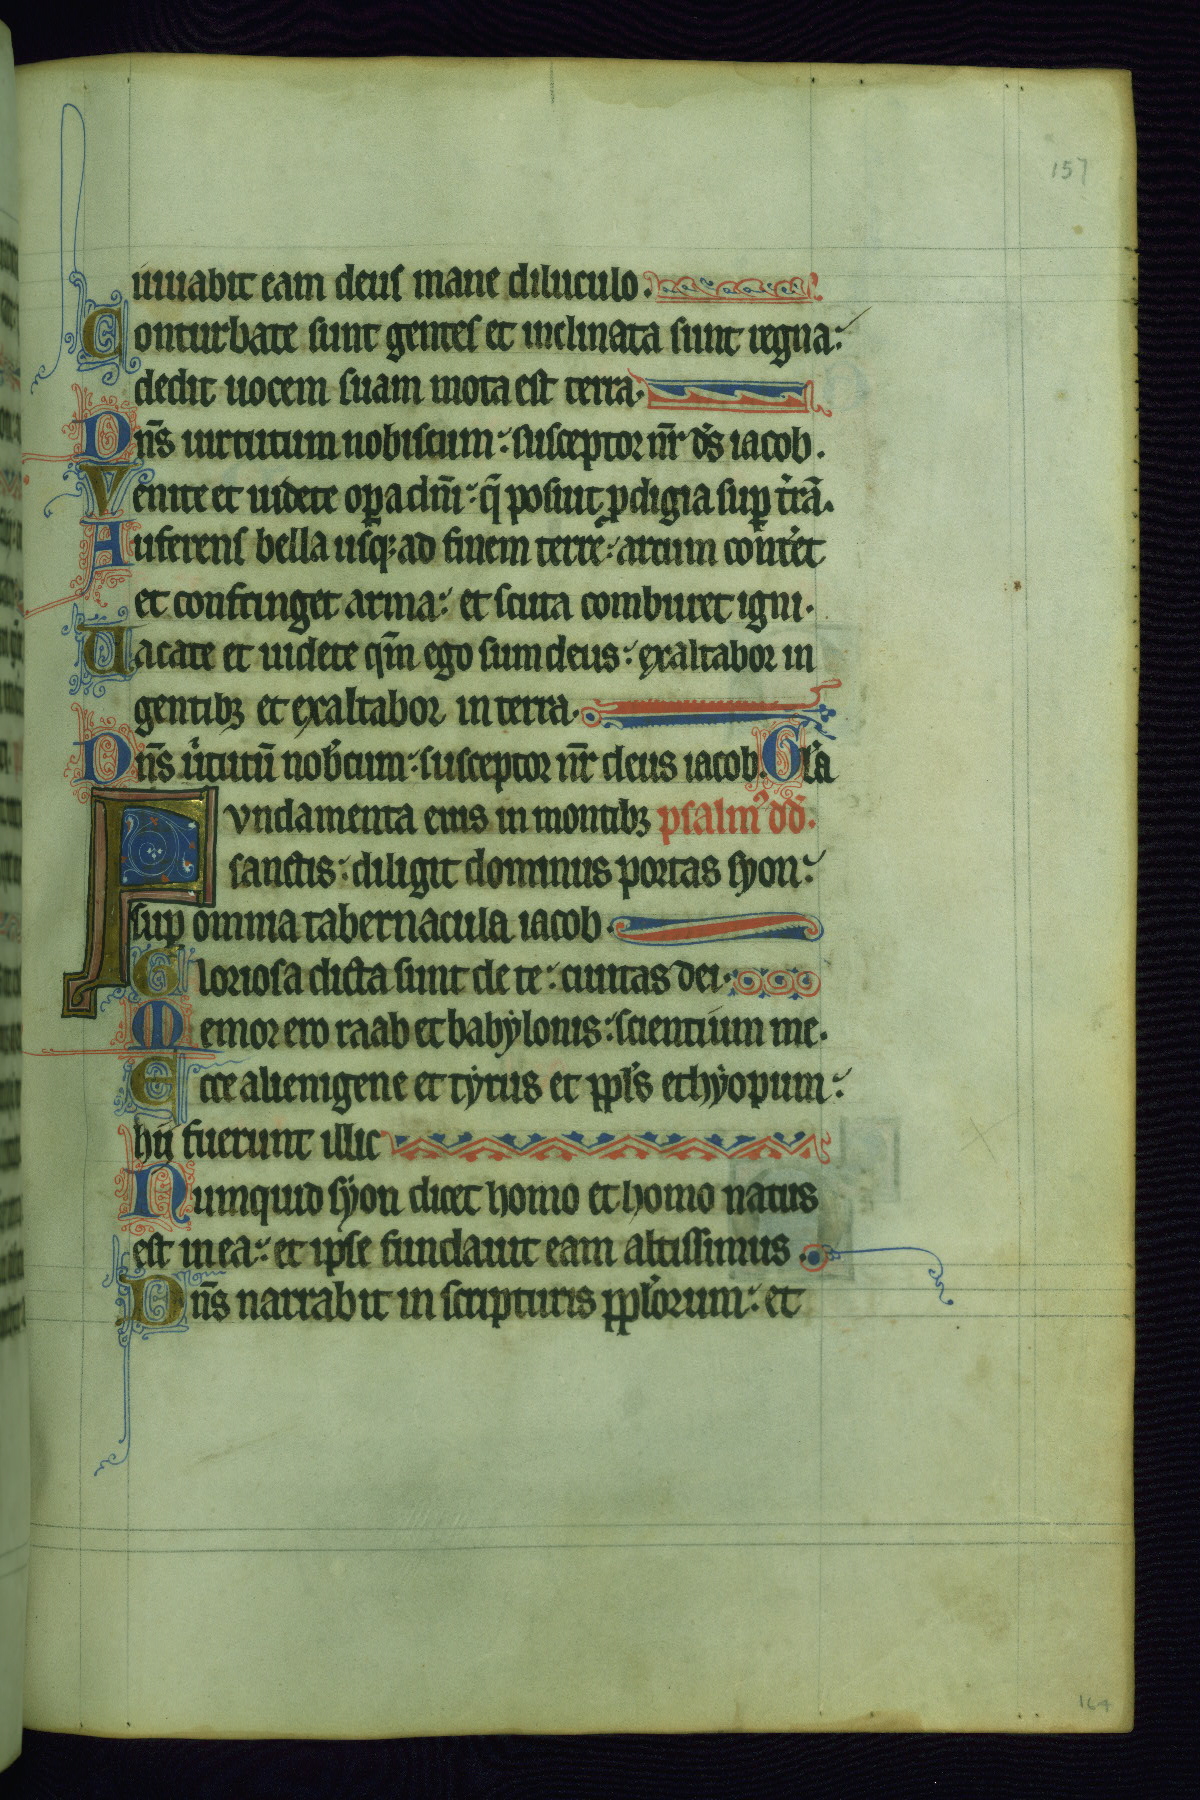 157
iuuabit eam deus mane diluculo.
Conturbate sunt gentes et inclinata sunt regna:
dedit uocem suam mota est terra.
Dn̄s uirtutum nobiscum: susceptor nr̄ ds̄ iacob.
Venite et uidete oꝑa dn̄i: q̄ posuit ꝓdigia suꝑ t̄rā.
Auferens bella usq; ad finem terre: arcum cont̓et
et confringet arma: et scuta comburet igni.
Uacate et uidete qm̄ ego sum deus: exaltabor in
gentibꝫ et exaltabor in terra.
Dn̄s u̓tutū nob̓cum: susceptor nr̄ deus iacob. Gl̓a
Fundamenta eius in montibꝫ psalm᾿ dd̄:
sanctis: diligit dominus portas syon:
suꝑ omnia tabernacula iacob.
Gloriosa dicta sunt de te: ciuitas dei.
Memor ero raab et babylonis: scientium me.
Ecce alienigene et tyrus et ppl̓s ethyopum:
hij fuerunt illic
Numquid syon dicet homo et homo natus
est in ea: et ipse fundauit eam altissimus.
Dn̄s narrabit in scripturis ppl̓orum: et
164